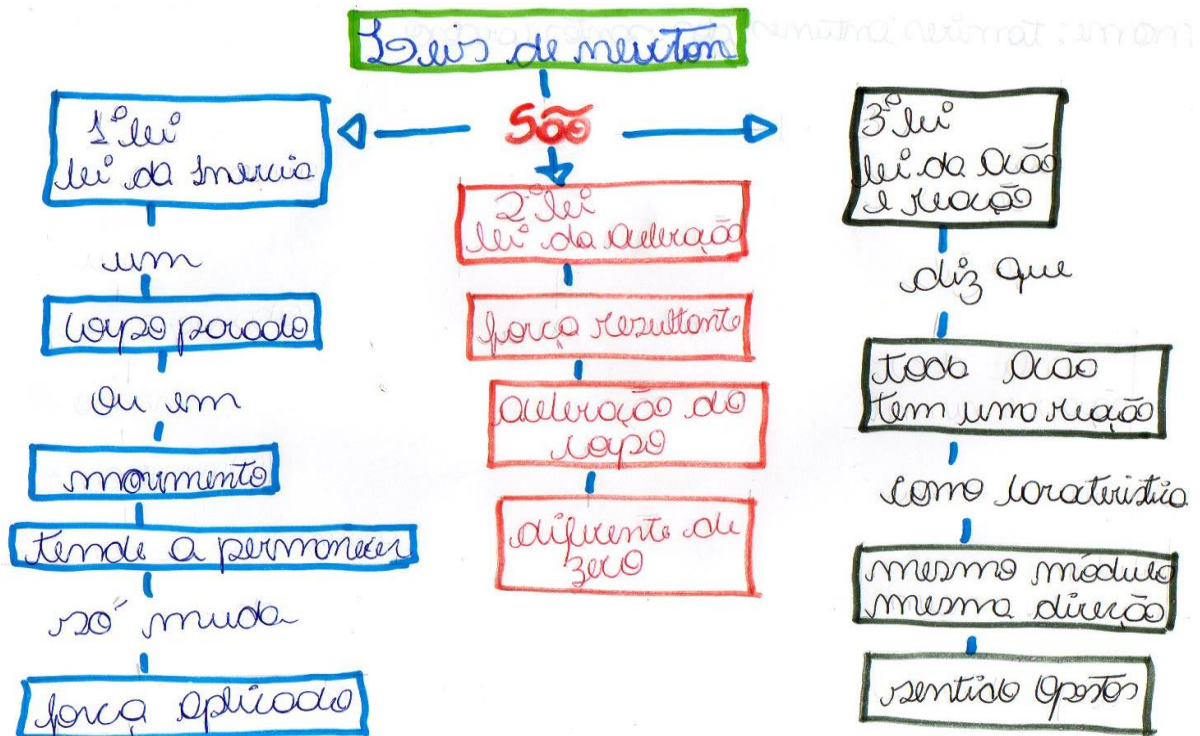 Leis de newton
São
1º lei
lei da Inercia
um
corpo parado
ou em
movimento
tende a permanecer
só muda
força aplicada
2º lei
lei da aceleração
força resultante
aceleração do
corpo
diferente de
zero
3º lei
lei da ação
e reação
diz que
toda ação
tem uma reação
como
mesmo módulo
mesma direção
sentido opostos